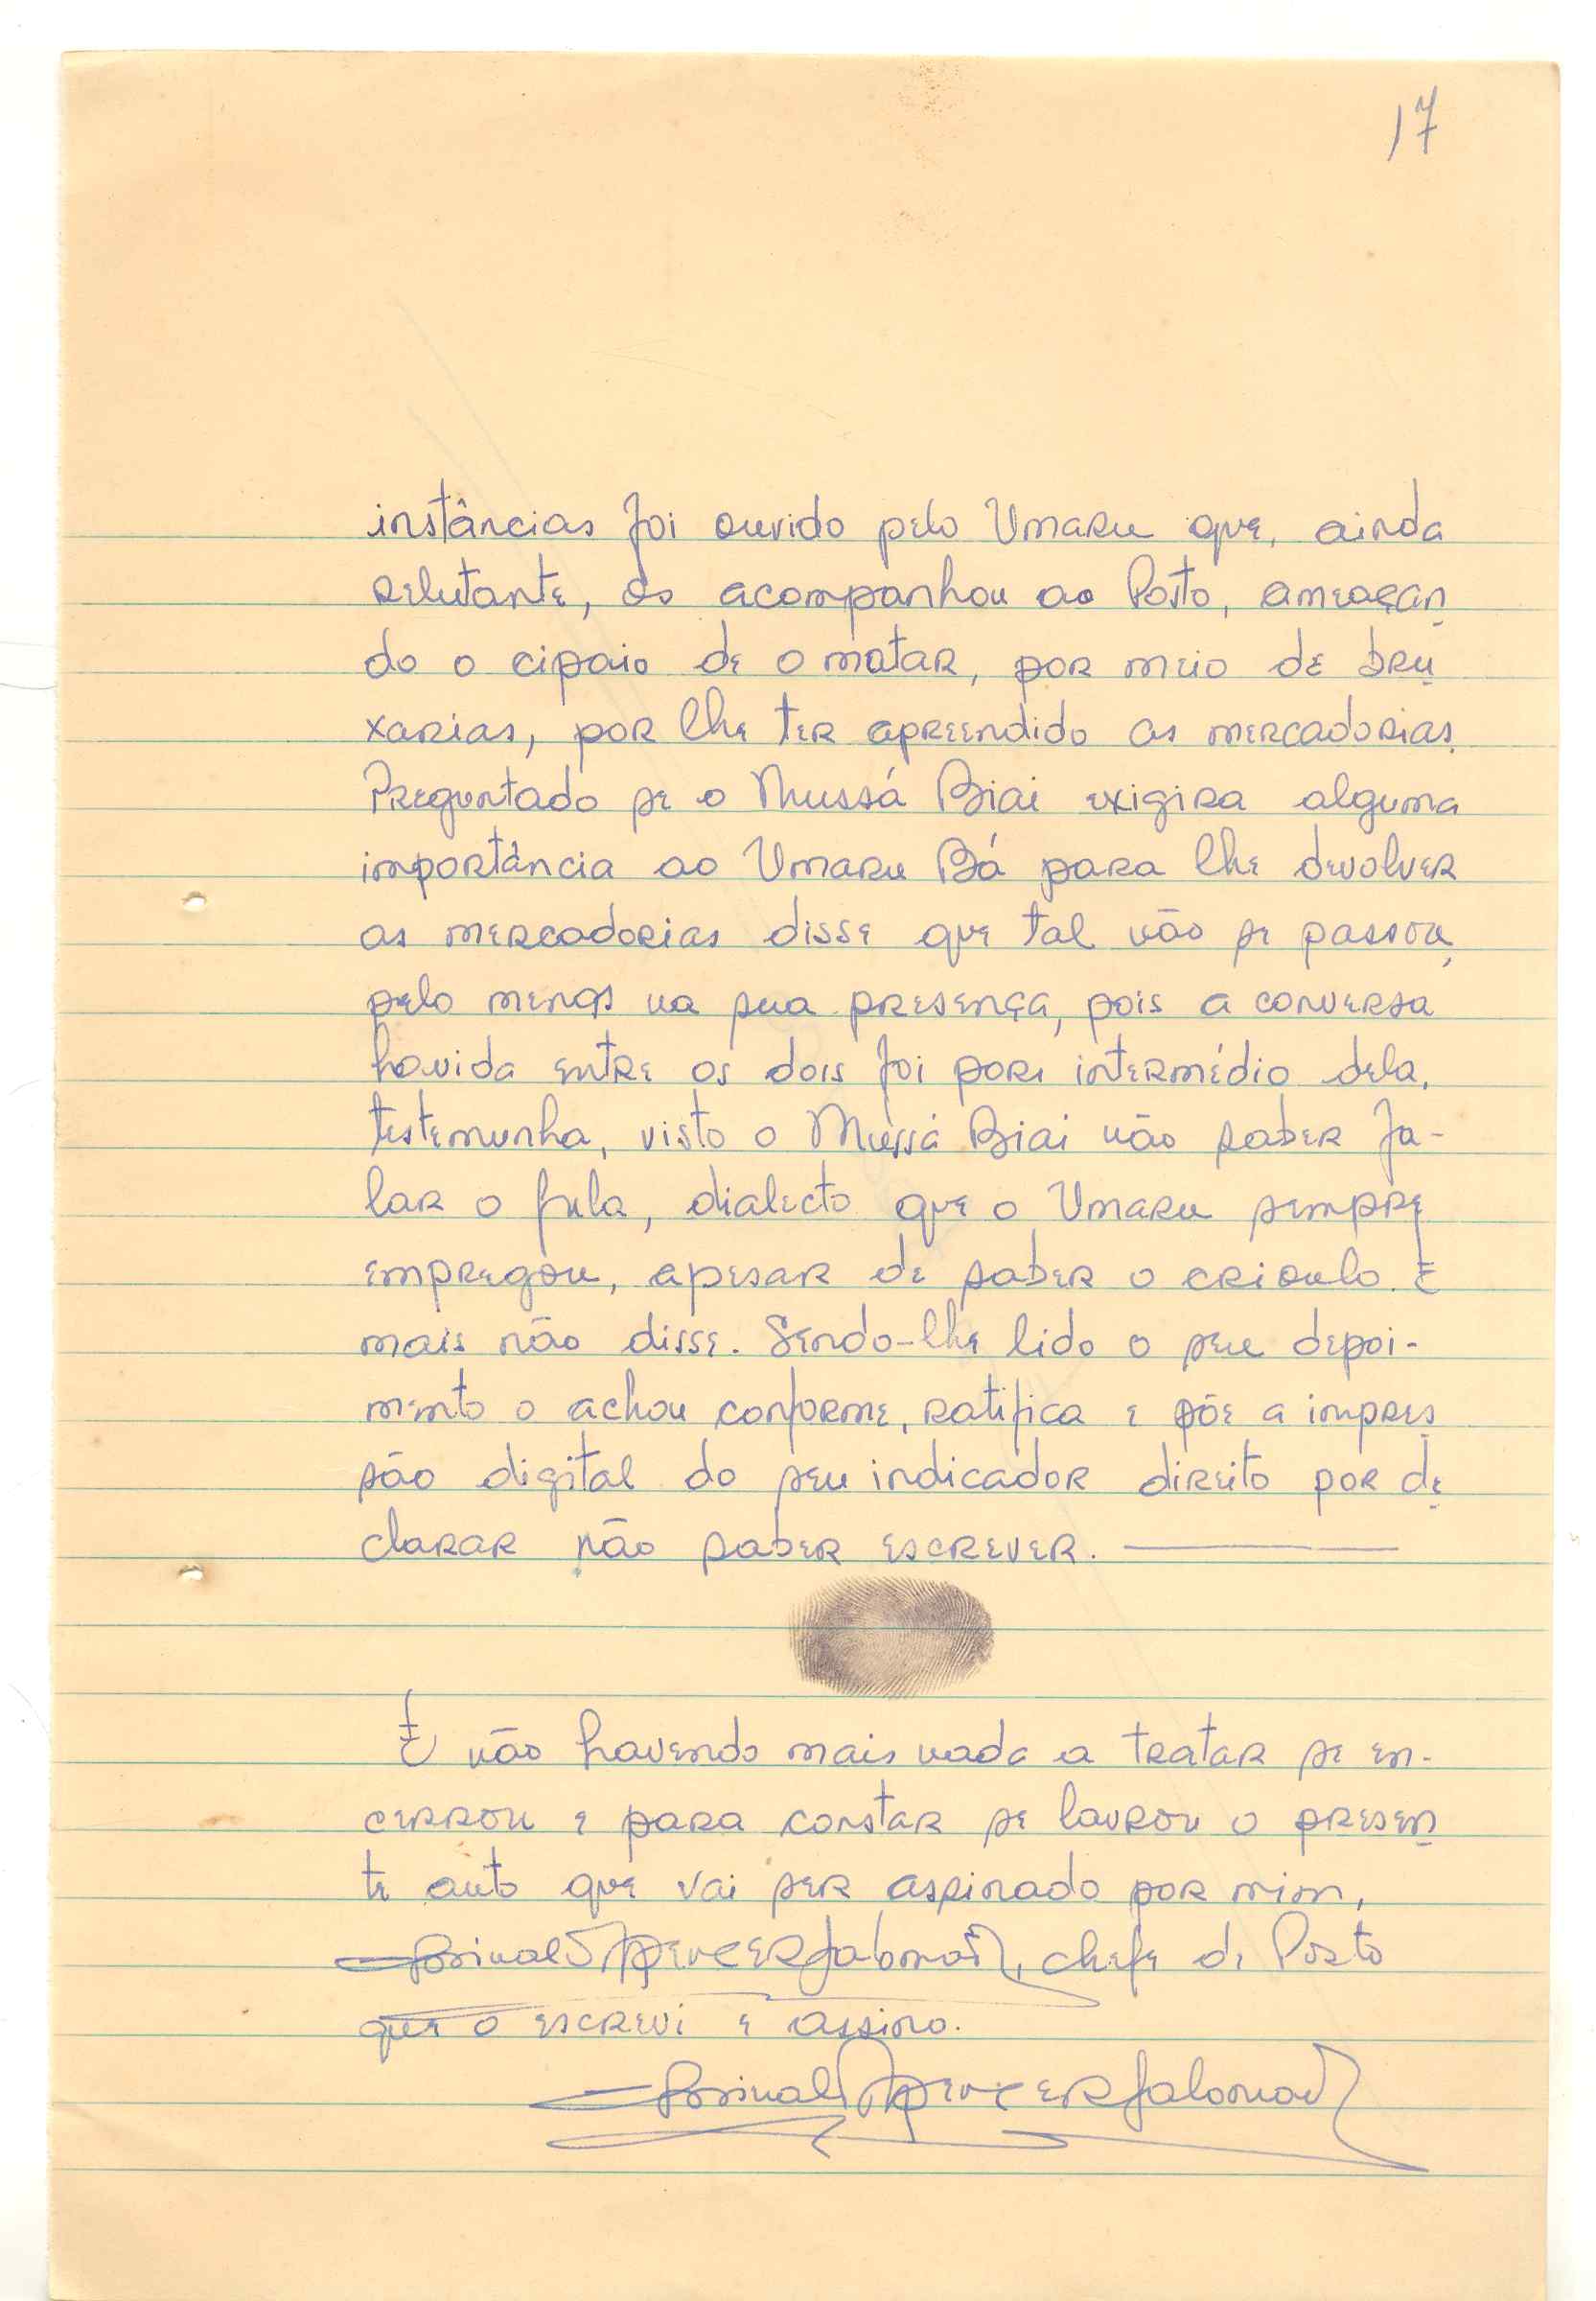 17
instâncias foi ouvido pelo Umaru que, ainda
relutante, os acompanhou ao Posto, ameaçan
do o cipaio de o matar, por meio de bru
xarias, por lhe ter apreendido as mercadorias.
Preguntado se o Mussá Biai exigira alguma
importância ao Umaru Bá para lhe devolver
as mercadorias disse que tal não se passou,
pelo menos na sua presença, pois a conversa
havida entre os dois foi por intermédio dela,
testemunha, visto o Mussá Biai não saber fa-
lar o fula, dialecto que o Umaru sempre
empregou, apesar de saber o crioulo. E
mais não disse. Sendo-lhe lido o seu depoi-
mento o achou conforme, ratifica e põe a impres
são digital do seu indicador direito por de
clarar não saber escrever.
E não havendo mais nada a tratar se en-
cerrou e para constar se lavrou o presen
te auto que vai ser assinado por mim,
Spencer Salomão, chefe de Posto
que o escrevi e assino.
Spencer Salomão